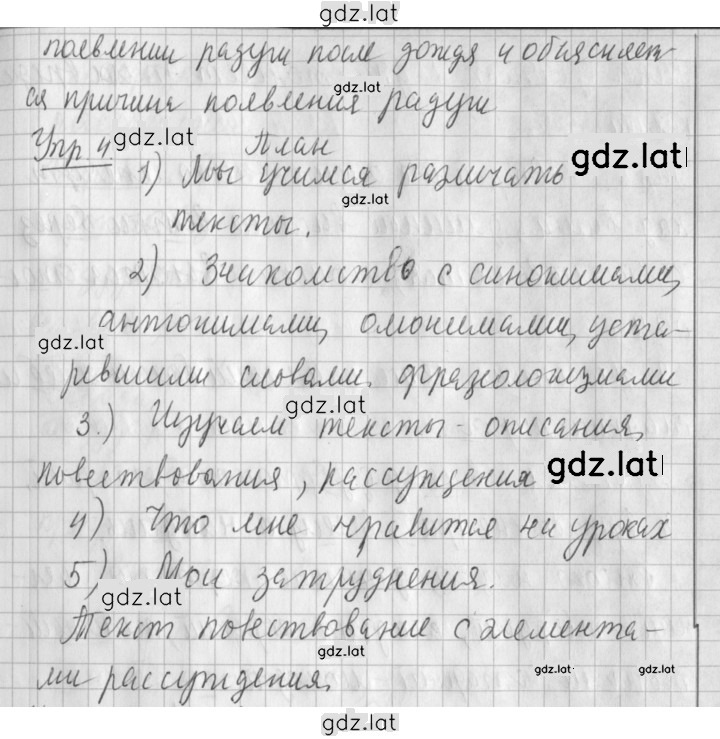 gdz.lat
появлении радуги после дождя и объясняет-
gdz.lat
ся причина появления радуги
Упр 4. gdz.lat План gdz.lat
1) Мы учимся различать
gdz.lat
тексты.
2) Знакомство с синонимами,
антонимами, омонимами, уста-
gdz.lat
ревшими словами, фразеологизмами
gdz.lat
3.) Изучаем тексты - описания,
повествования, рассуждения gdz.lat
4) Что мне нравится на уроках
5) Мои затруднения.
gdz.lat
Текст повествование с элемента-
gdz.lat gdz.lat gdz.lat
ми рассуждения.
gdz.lat